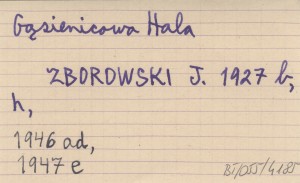 Gąsienicowa Hala
ZBOROWSKI J. 1927 b,
h,
1946 ad,
1947 e
BI/055/4185